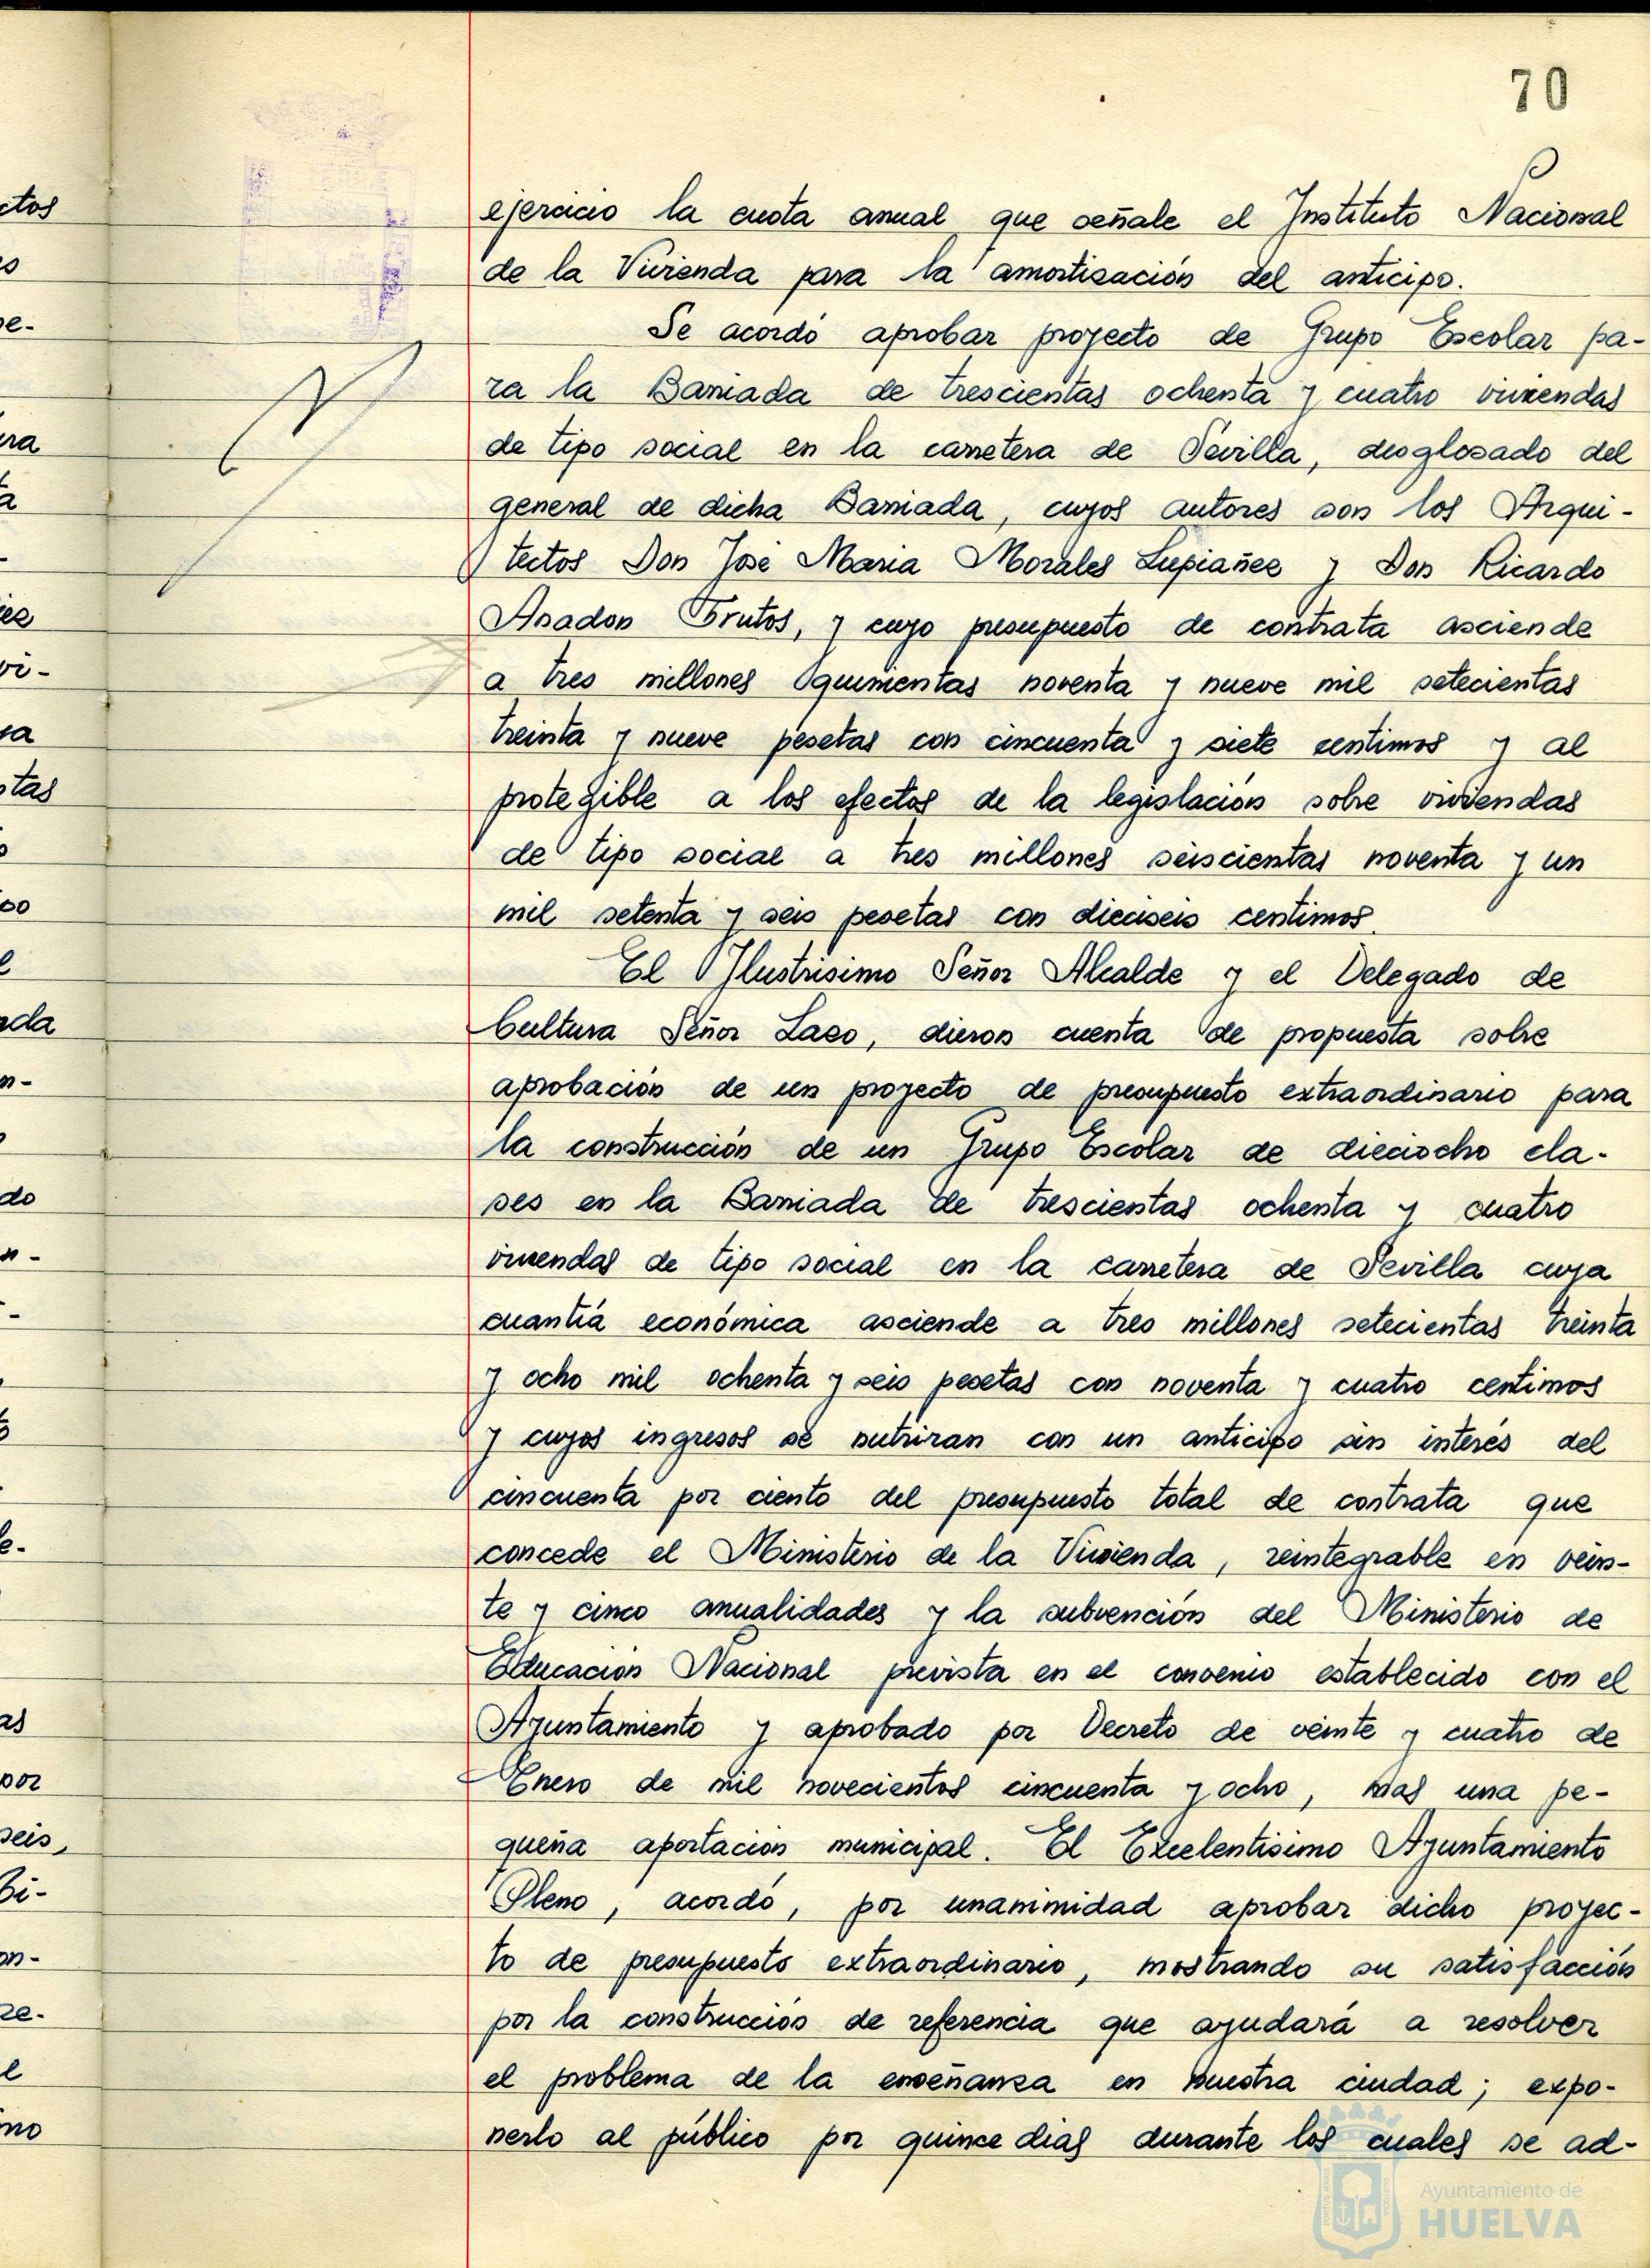 70
ejercicio la cuota anual que señale el Instituto Nacional
de la Vivienda para la amortización del anticipo.
Se acordó aprobar proyecto de Grupo Escolar pa-
ra la Barriada de trescientas ochenta y cuatro viviendas
de tipo social en la carretera de Sevilla, desglosado del
general de dicha Barriada, cuyos autores son los Arqui-
tectos Don José Maria Morales Lupiañez y Don Ricardo
Anadon Frutos, y cuyo presupuesto de contrata asciende
a tres millones quinientas noventa y nueve mil setecientas
treinta y nueve pesetas con cincuenta y siete centimos y al
protegible a los efectos de la legislación sobre viviendas
de tipo social a tres millones seiscientas noventa y un
mil setenta y seis pesetas con dieciseis centimos.
El Ilustrisimo Señor Alcalde y el Delegado de
Cultura Señor Lazo, dieron cuenta de propuesta sobre
aprobación de un proyecto de presupuesto extraordinario para
la construcción de un Grupo Escolar de dieciocho cla-
ses en la Barriada de trescientas ochenta y cuatro
viviendas de tipo social en la carretera de Sevilla cuya
cuantiá económica asciende a tres millones setecientas treinta
y ocho mil ochenta y seis pesetas con noventa y cuatro centimos
y cuyos ingresos se nutriran con un anticipo sin interés del
cincuenta por ciento del presupuesto total de contrata que
concede el Ministerio de la Vivienda, reintegrable en vein-
te y cinco anualidades y la subvención del Ministerio de
Educación Nacional prevista en el convenio establecido con el
Ayuntamiento y aprobado por Decreto de veinte y cuatro de
Enero de mil novecientos cincuenta y ocho, mas una pe-
queña aportación municipal. El Excelentisimo Ayuntamiento
Pleno, acordó, por unanimidad aprobar dicho proyec-
to de presupuesto extraordinario, mostrando su satisfacción
por la construcción de referencia que ayudará a resolver
el problema de la enseñanza en nuestra ciudad; expo-
nerlo al público por quince dias durante los cuales se ad-
Ayuntamiento de
HUELVA